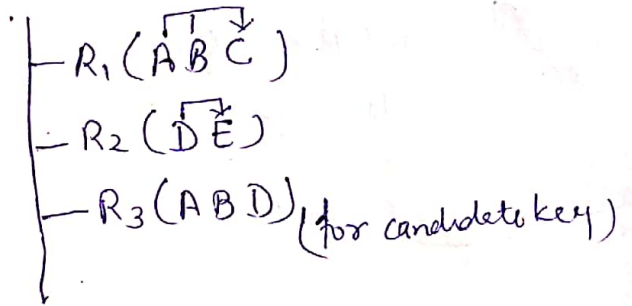 R₁ (A B C)
R₂ (D E)
R₃ (A B D) (for candidate key)